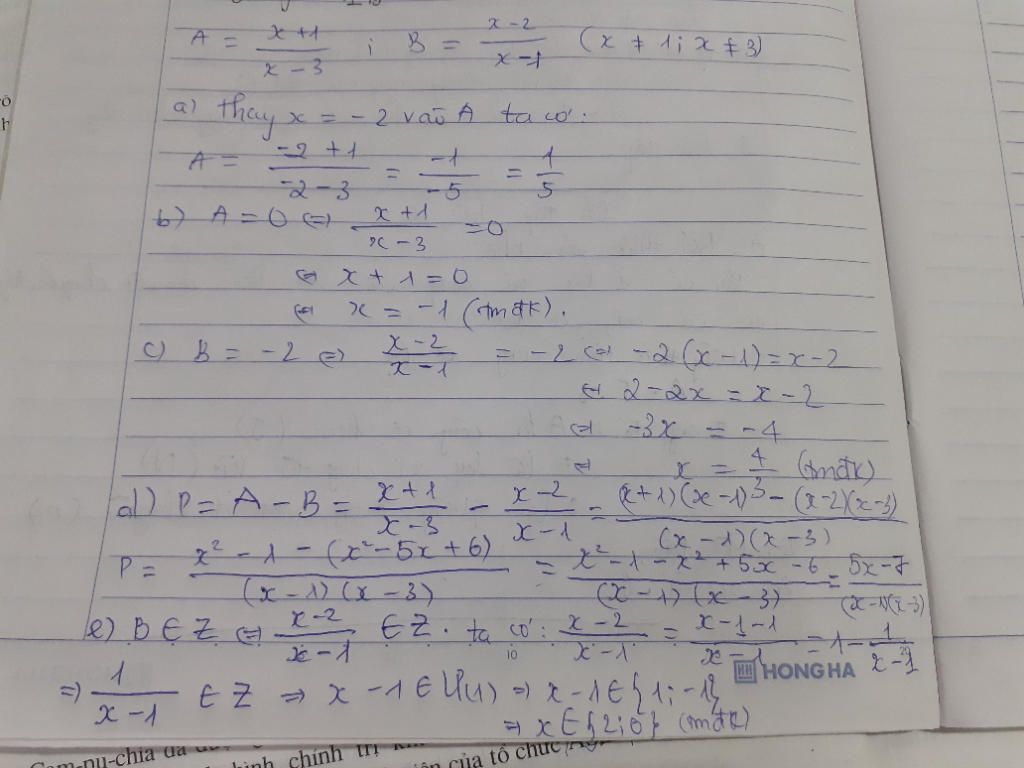 A = \frac{x+1}{x-3} ; B = \frac{x-2}{x-1} (x ≠ 1; x ≠ 3)
a) thay x = -2 vào A ta có:
A = \frac{-2+1}{-2-3} = \frac{-1}{-5} = \frac{1}{5}
b) A = 0 ⇔ \frac{x+1}{x-3} = 0
⇔ x + 1 = 0
⇔ x = -1 (tmđk).
c) B = -2 ⇔ \frac{x-2}{x-1} = -2 ⇔ -2(x-1) = x-2
⇔ 2-2x = x-2
⇔ -3x = -4
⇔ x = \frac{4}{3} (tmđk)
d) P = A - B = \frac{x+1}{x-3} - \frac{x-2}{x-1} = \frac{(x+1)(x-1) - (x-2)(x-3)}{(x-1)(x-3)}
P = \frac{x² - 1 - (x² - 5x + 6)}{(x-1)(x-3)} = \frac{x² - 1 - x² + 5x - 6}{(x-1)(x-3)} = \frac{5x-7}{(x-1)(x-3)}
e) B ∈ Z ⇔ \frac{x-2}{x-1} ∈ Z. ta có: \frac{x-2}{x-1} = \frac{x-1-1}{x-1} = 1 - \frac{1}{x-1}
HONG HA
⇒ \frac{1}{x-1} ∈ Z ⇒ x - 1 ∈ Ư(1) ⇒ x-1 ∈ {1; -1}
⇒ x ∈ {2; 0} (tmđk)
chính trị
của tổ chức